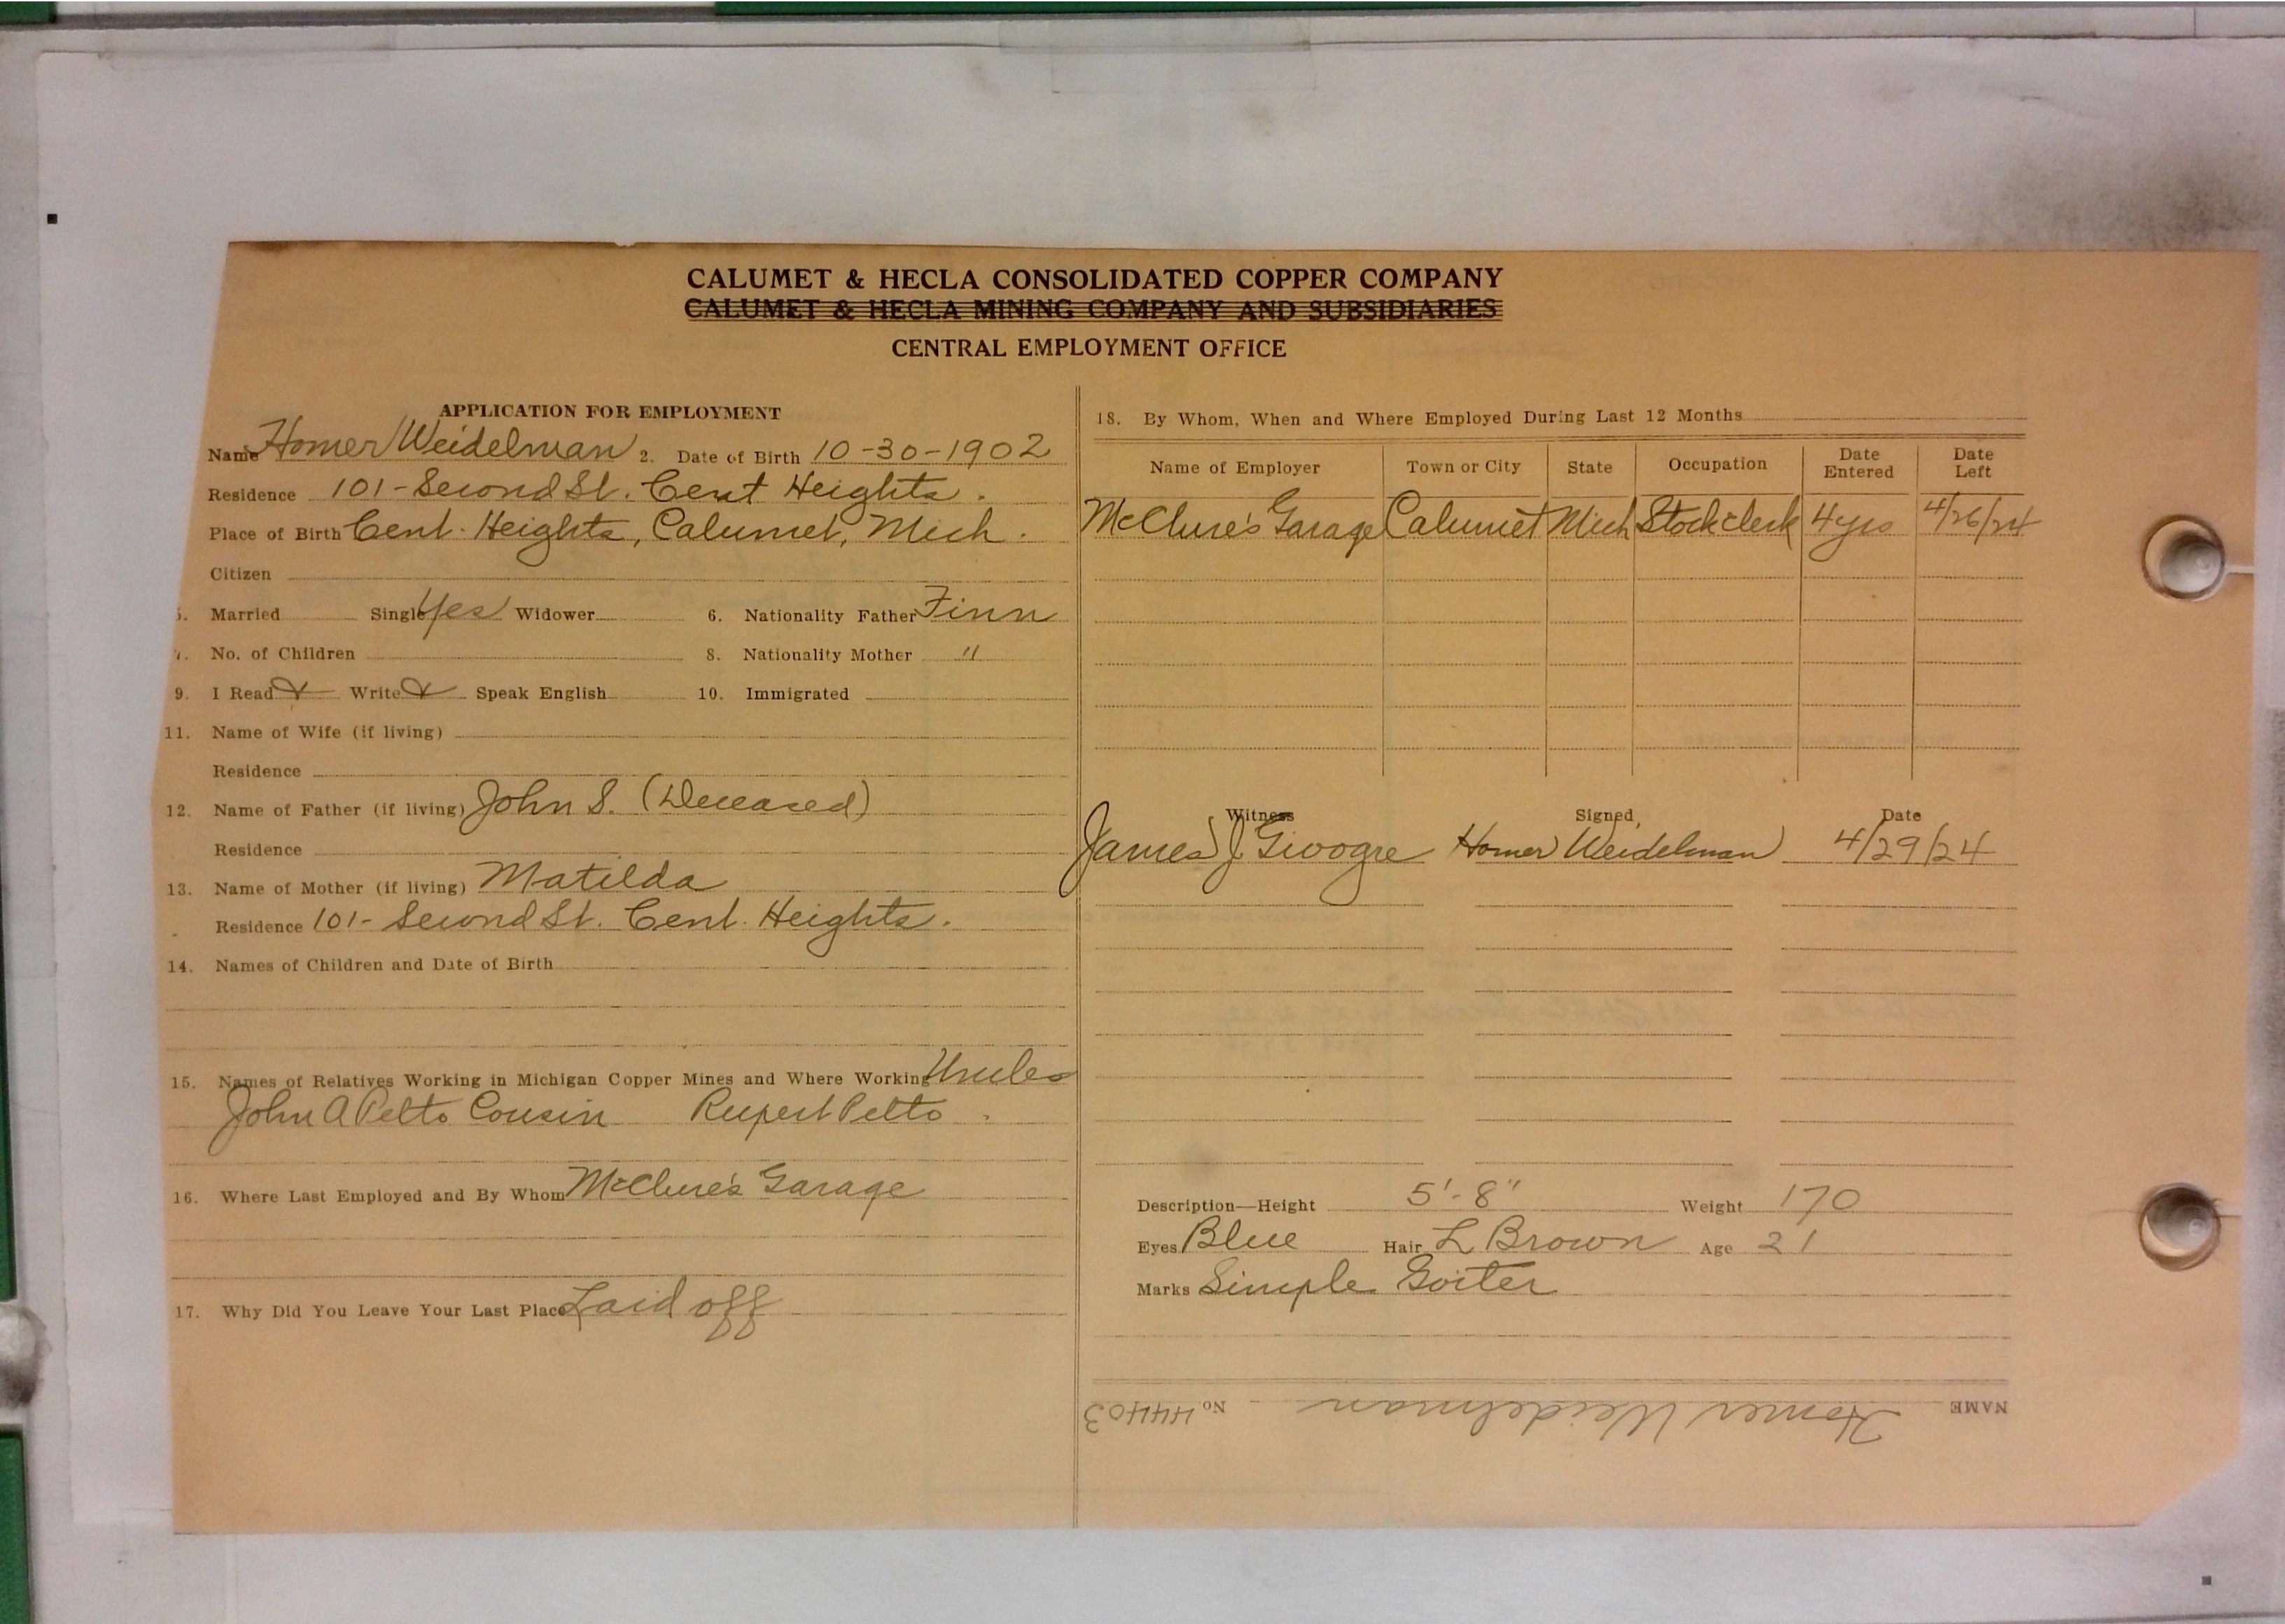 CALUMET & HECLA CONSOLIDATED COPPER COMPANY
CALUMET & HECLA MINING COMPANY AND SUBSIDIARIES
CENTRAL EMPLOYMENT OFFICE
APPLICATION FOR EMPLOYMENT
Name Homer Weidelman 2. Date of Birth 10-30-1902
Residence 101-Second St. Cent Heights.
Place of Birth Cent. Heights, Calumet, Mich.
Citizen
5. Married Single Yes Widower 6. Nationality Father Finn
7. No. of Children 8. Nationality Mother "
9. I Read Write Speak English 10. Immigrated
11. Name of Wife (if living)
Residence
12. Name of Father (if living) John S. (Deceased)
Residence
13. Name of Mother (if living) Matilda
Residence 101- Second St. Cent. Heights.
14. Names of Children and Date of Birth
15. Names of Relatives Working in Michigan Copper Mines and Where Working Uncles
John A Pelto Cousin Rupert Pelto.
16. Where Last Employed and By Whom McClure's Garage
17. Why Did You Leave Your Last Place Laid off
18. By Whom, When and Where Employed During Last 12 Months
Name of Employer Town or City State Occupation Date Entered Date Left
McClure's Garage Calumet Mich Stock clerk 4 yrs 4/26/24
Witness Signed, Date
James J. Homer Weidelman 4/29/24
Description—Height 5'-8" Weight 170
Eyes Blue Hair L Brown Age 21
Marks Simple Goiter
NAME Homer Weidelman - No. 44403